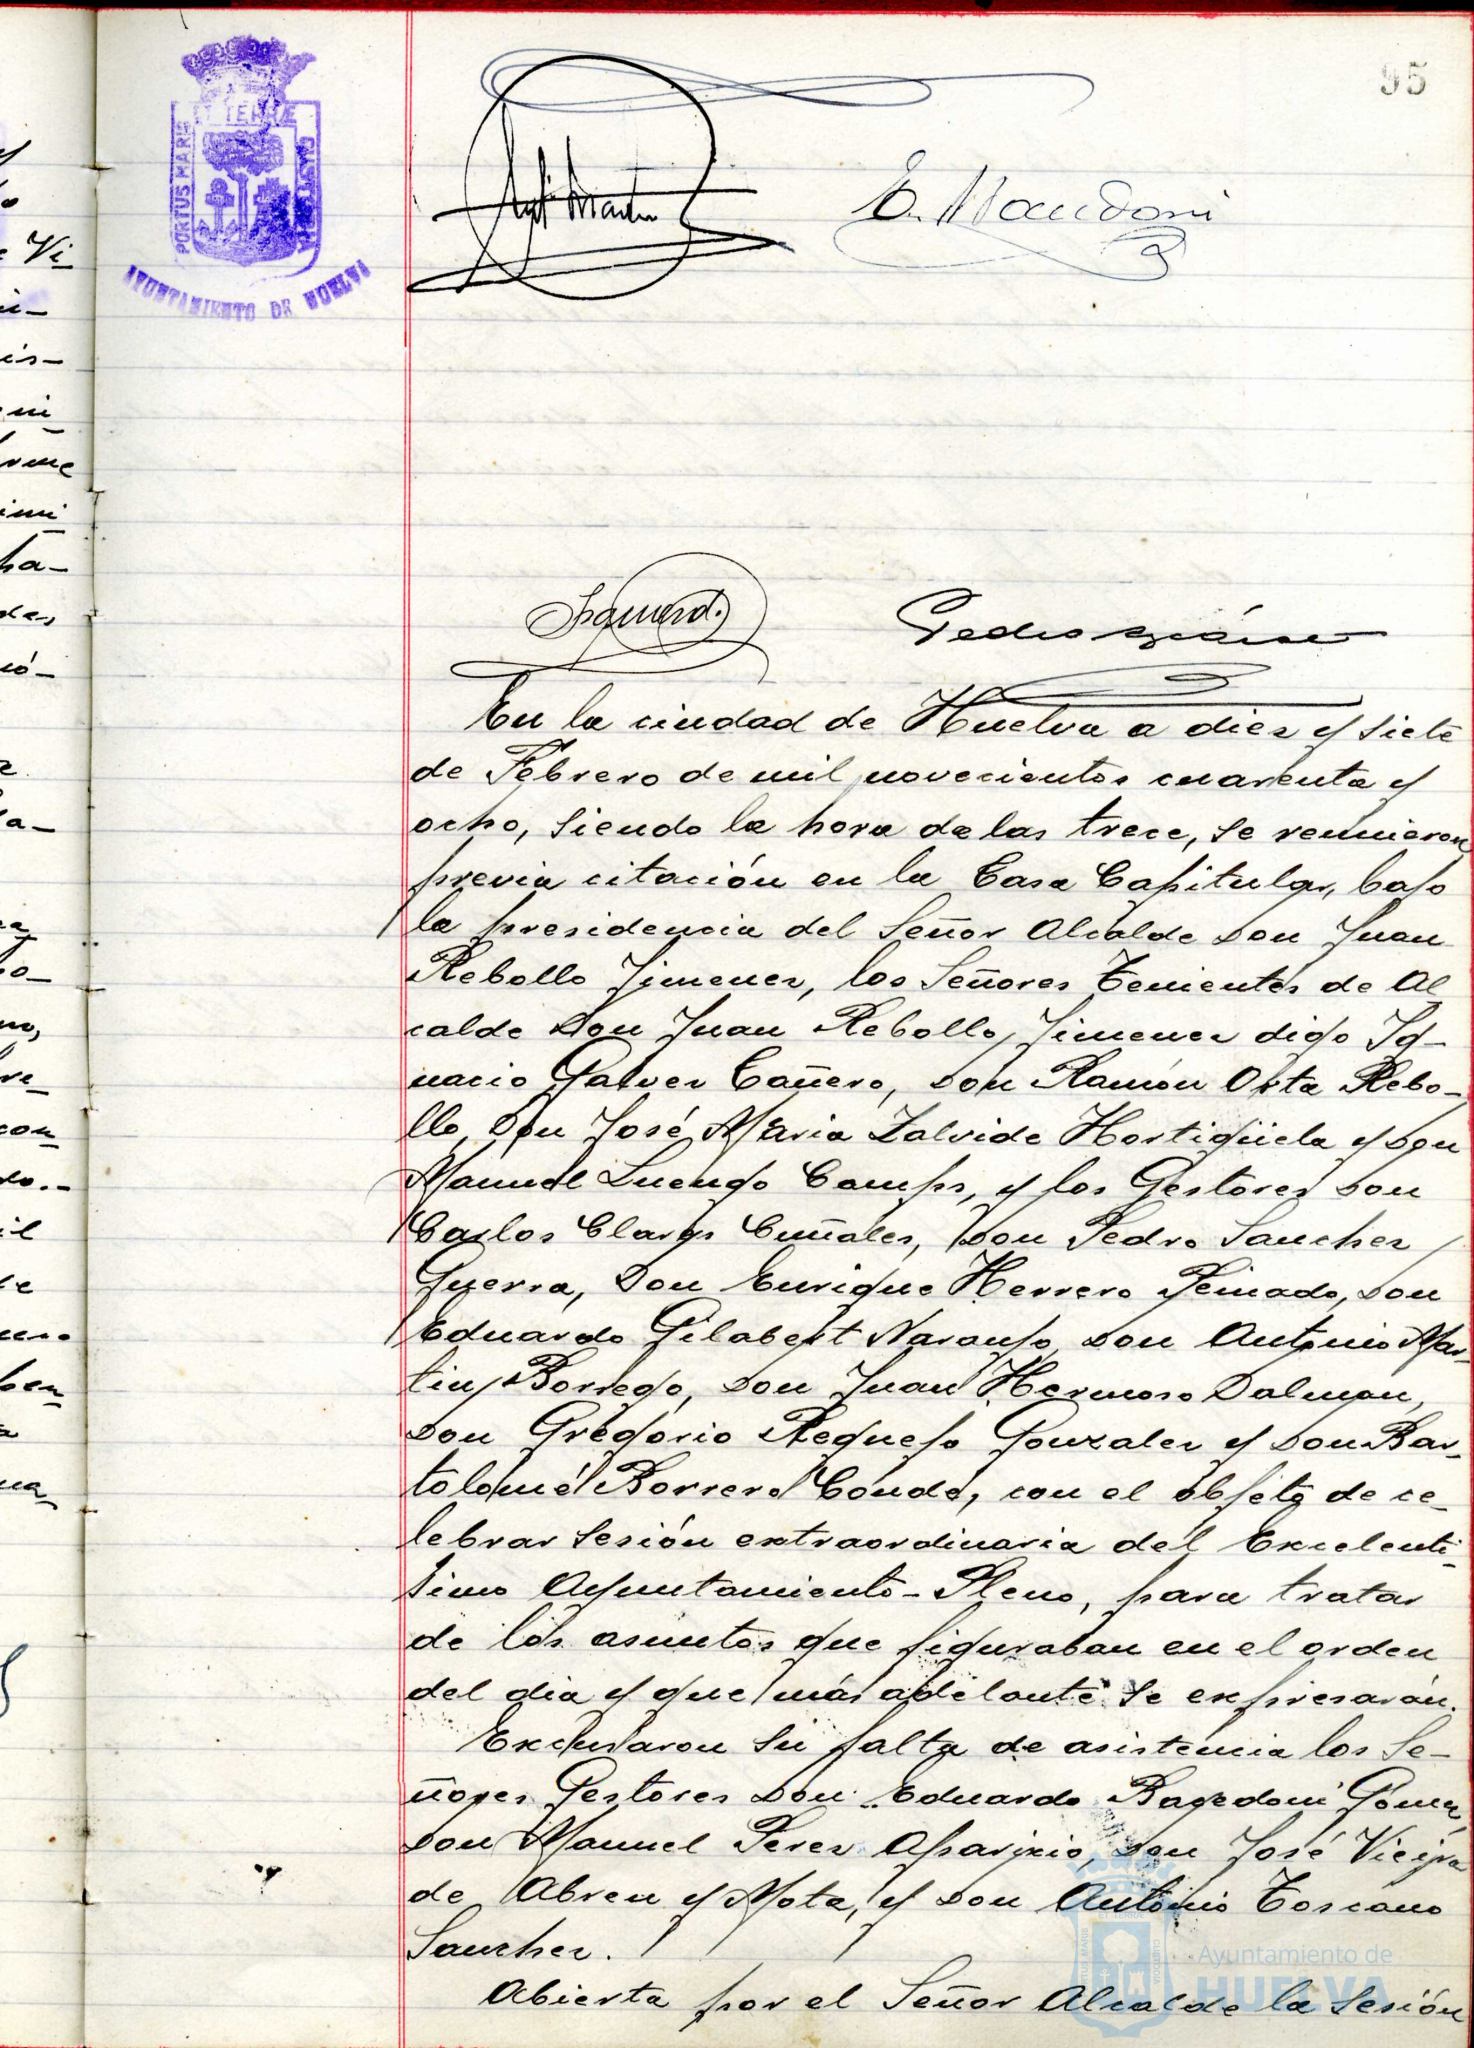 95
PORTUS MARIS ET TERRÆ CUSTODIA
AYUNTAMIENTO DE HUELVA
En la ciudad de Huelva a diez y siete
de Febrero de mil novecientos cuarenta y
ocho, siendo la hora de las trece, se reunieron
previa citación en la Casa Capitular, bajo
la presidencia del Señor Alcalde Don Juan
Rebollo Jimenez, los Señores Tenientes de Al-
calde Don Juan Rebollo Jimenez digo Ig-
nacio Galvez Cañero, Don Ramón Orta Rebo-
llo, Don José Maria Zalvide Hortigüela y Don
Manuel Luengo Camps, y los Gestores Don
Carlos Claros Cuñales, Don Pedro Sanchez
Guerra, Don Enrique Herrero Peinado, Don
Eduardo Gilabert Naranjo, Don Antonio Mar-
tin Borrego, Don Juan Hermoso Dalman,
Don Gregorio Requejo Gonzalez y Don Bar-
tolomé Borrero Conde, con el objeto de ce-
lebrar sesión extraordinaria del Excelentí-
simo Ayuntamiento-Pleno, para tratar
de los asuntos que figuraban en el orden
del dia y que más adelante se expresarán.
Excusaron su falta de asistencia los Se-
ñores Gestores Don Eduardo Gómez,
Don Manuel Perez Aparicio, Don José Vieyra
de Abreu y Mota, y Don Antonio Toscano
Sanchez.
Abierta por el Señor Alcalde la Sesión
Ayuntamiento de
HUELVA